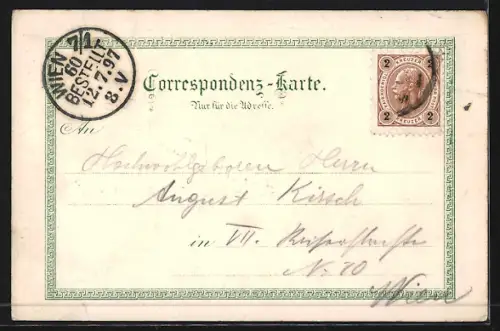 WIEN 7/1
60
BESTELLT
12.7.97
8.V
Correspondenz-Karte.
Nur für die Adresse.
2 2
KREUZER
2 2
An
Hochwohlgeboren Herrn
August Kirsch
in VII.
No. 70
Wien